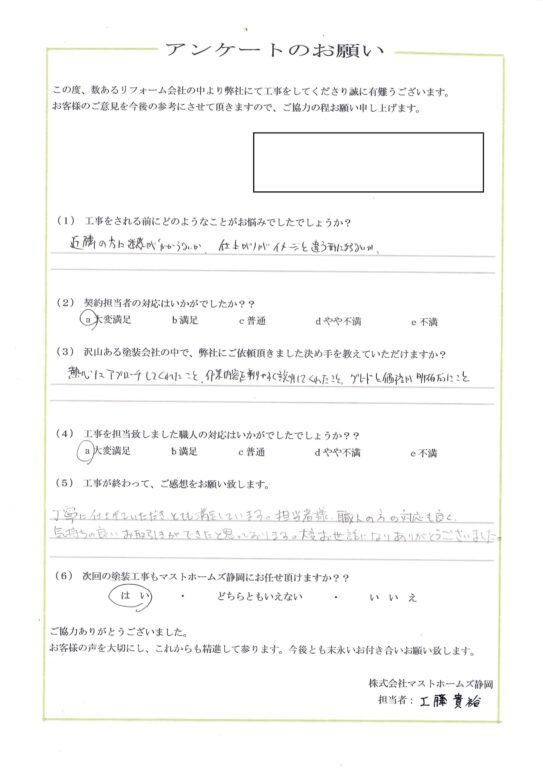 アンケートのお願い
この度、数あるリフォーム会社の中より弊社にて工事をしてくださり誠に有難うございます。
お客様のご意見を今後の参考にさせて頂きますので、ご協力の程お願い申し上げます。
(1) 工事をされる前にどのようなことがお悩みでしたでしょうか?
近隣の方に迷惑がかからないか、仕上がりがイメージと違う事にならないか、
(2) 契約担当者の対応はいかがでしたか??
a大変満足 b満足 c普通 dやや不満 e不満
(3) 沢山ある塗装会社の中で、弊社にご依頼頂きました決め手を教えていただけますか?
熱心にアプローチしてくれたこと、作業内容を判りやすく説明してくれたこと、グレードと価格が明確だったこと
(4) 工事を担当致しました職人の対応はいかがでしたでしょうか?
a大変満足 b満足 c普通 dやや不満 e不満
(5) 工事が終わって、ご感想をお願い致します。
丁寧に仕上げていただきとても満足しています。担当者様、職人の方の対応も良く、
気持ちの良いお取引きができたと思っております。大変お世話になりありがとうございました。
(6) 次回の塗装工事もマストホームズ静岡にお任せ頂けますか??
はい ・ どちらともいえない ・ いいえ
ご協力ありがとうございました。
お客様の声を大切にし、これからも精進して参ります。今後とも末永いお付き合いお願い致します。
株式会社マストホームズ静岡
担当者:工藤貴裕